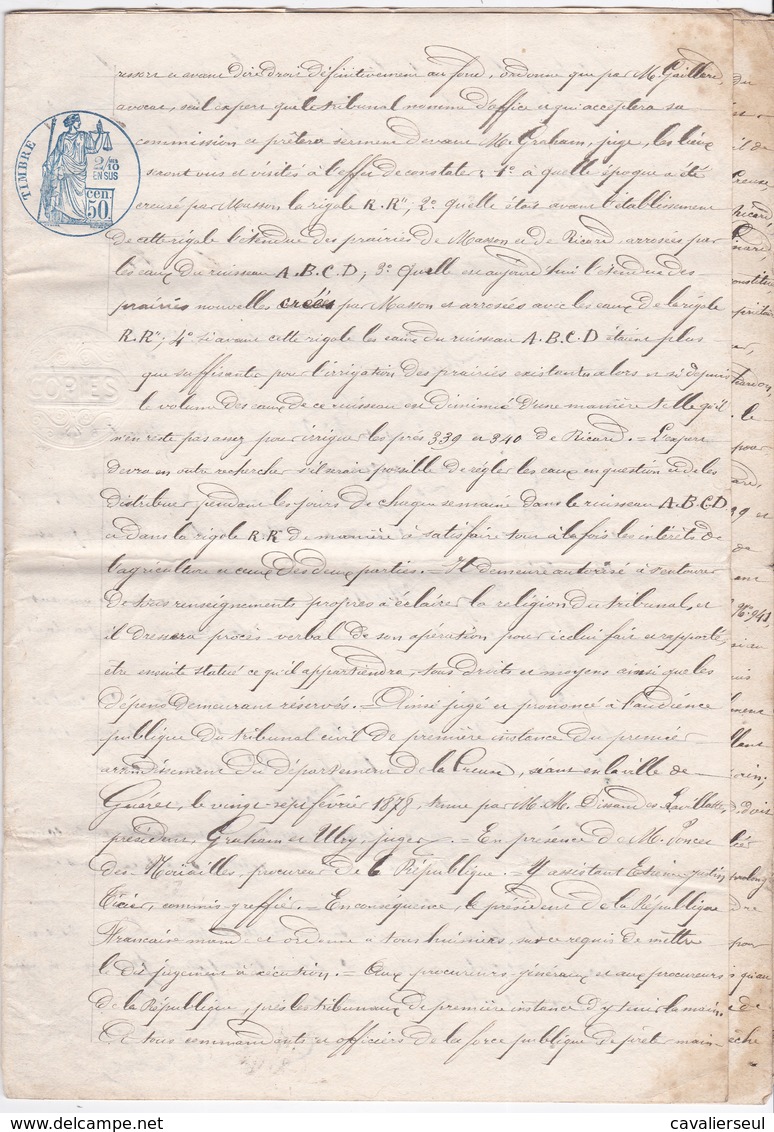 TIMBRE
2/10 EN SUS
50 cen.
COPIES
ressort et avant dire droit définitivement au fond, ordonne que par Mr Gaillard,
avocat, seul expert que le tribunal nomme d'office et qui acceptera sa
commission et prêtera serment devant Mr Graham, juge, les lieux
seront vus et visités à l'effet de constater : 1° à quelle époque a été
creusé par Masson la rigole R.R"; 2° quelle était avant l'établissement
de cette rigole l'étendue des prairies de Masson et de Ricard arrosées par
les eaux du ruisseau A.B.C.D; 3° quelle est aujourd'hui l'étendue des
prairies nouvelles créés par Masson et arrosées avec les eaux de la rigole
R.R"; 4° si avant cette rigole les eaux du ruisseau A.B.C.D étaient plus
que suffisantes pour l'irrigation des prairies existant alors et si depuis
le volume des eaux de ce ruisseau est diminué d'une manière telle qu'il
n'en reste pas assez pour irriguer les prés 339 et 340 de Ricard. = L'expert
devra en outre rechercher s'il serait possible de régler les eaux en question et de les
distribuer pendant les jours de chaque semaine dans le ruisseau A.B.C.D
et dans la rigole R.R" de manière à satisfaire tout à la fois les intérêts de
l'agriculture et ceux des deux parties. = Il demeure autorisé à s'entourer
de tous renseignements propres à éclairer la religion du tribunal, et
il dressera procès-verbal de son opération pour icelui fait et rapporté,
être ensuite statué ce qu'il appartiendra, tous droits et moyens ainsi que les
dépens demeurant réservés. = Ainsi jugé et prononcé à l'audience
publique du tribunal civil de première instance du premier
arrondissement du département de la Creuse, séant en la ville de
Guéret, le vingt sept février 1878, tenue par M.M. Dissandes Lavillatte,
président, Graham et juges. = En présence de Mr
des procureur de la République. = Y assistant
commis-greffier. = En conséquence, le président de la République
Française mande et ordonne à tous huissiers, sur ce requis de mettre
le dit jugement à exécution. = Aux procureurs-généraux et aux procureurs
de la République, près les tribunaux de première instance d'y tenir la main.
A tous commandants et officiers de la force publique de prêter main
cavalierseul